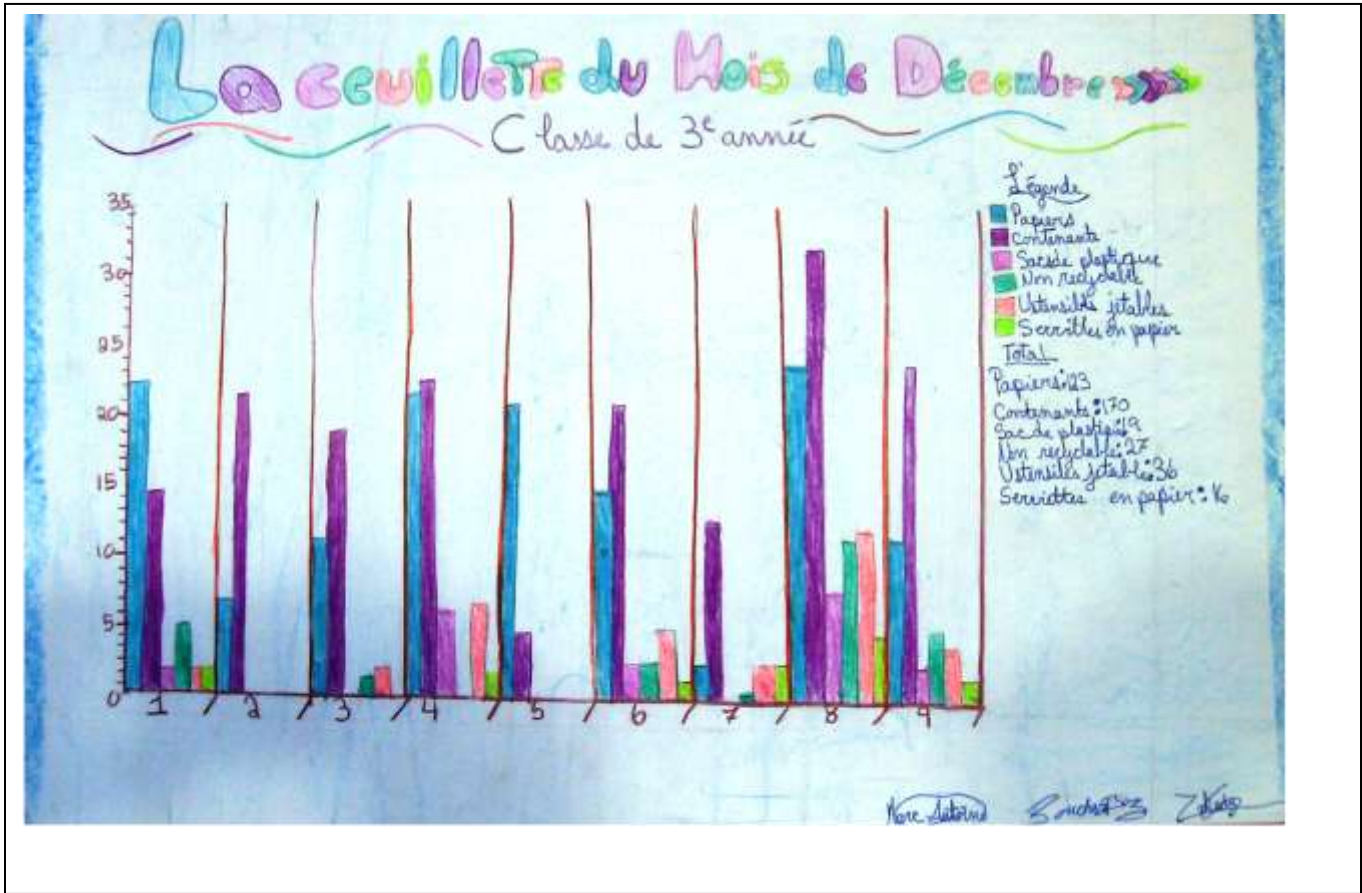 La ceuillette du Mois de Décembre
Classe de 3e année
Légende
Papiers
contenants
Sacs de plastique
Non recyclable
Ustensiles jetables
Servittes en papier
Total
Papiers: 123
Contenants: 170
Sac de plastique: 19
Non recyclable: 27
Ustensiles jetable: 36
Serviettes en papier: 16
35
30
25
20
15
10
5
0
1 / 2 / 3 / 4 / 5 / 6 / 7 / 8 / 9 /